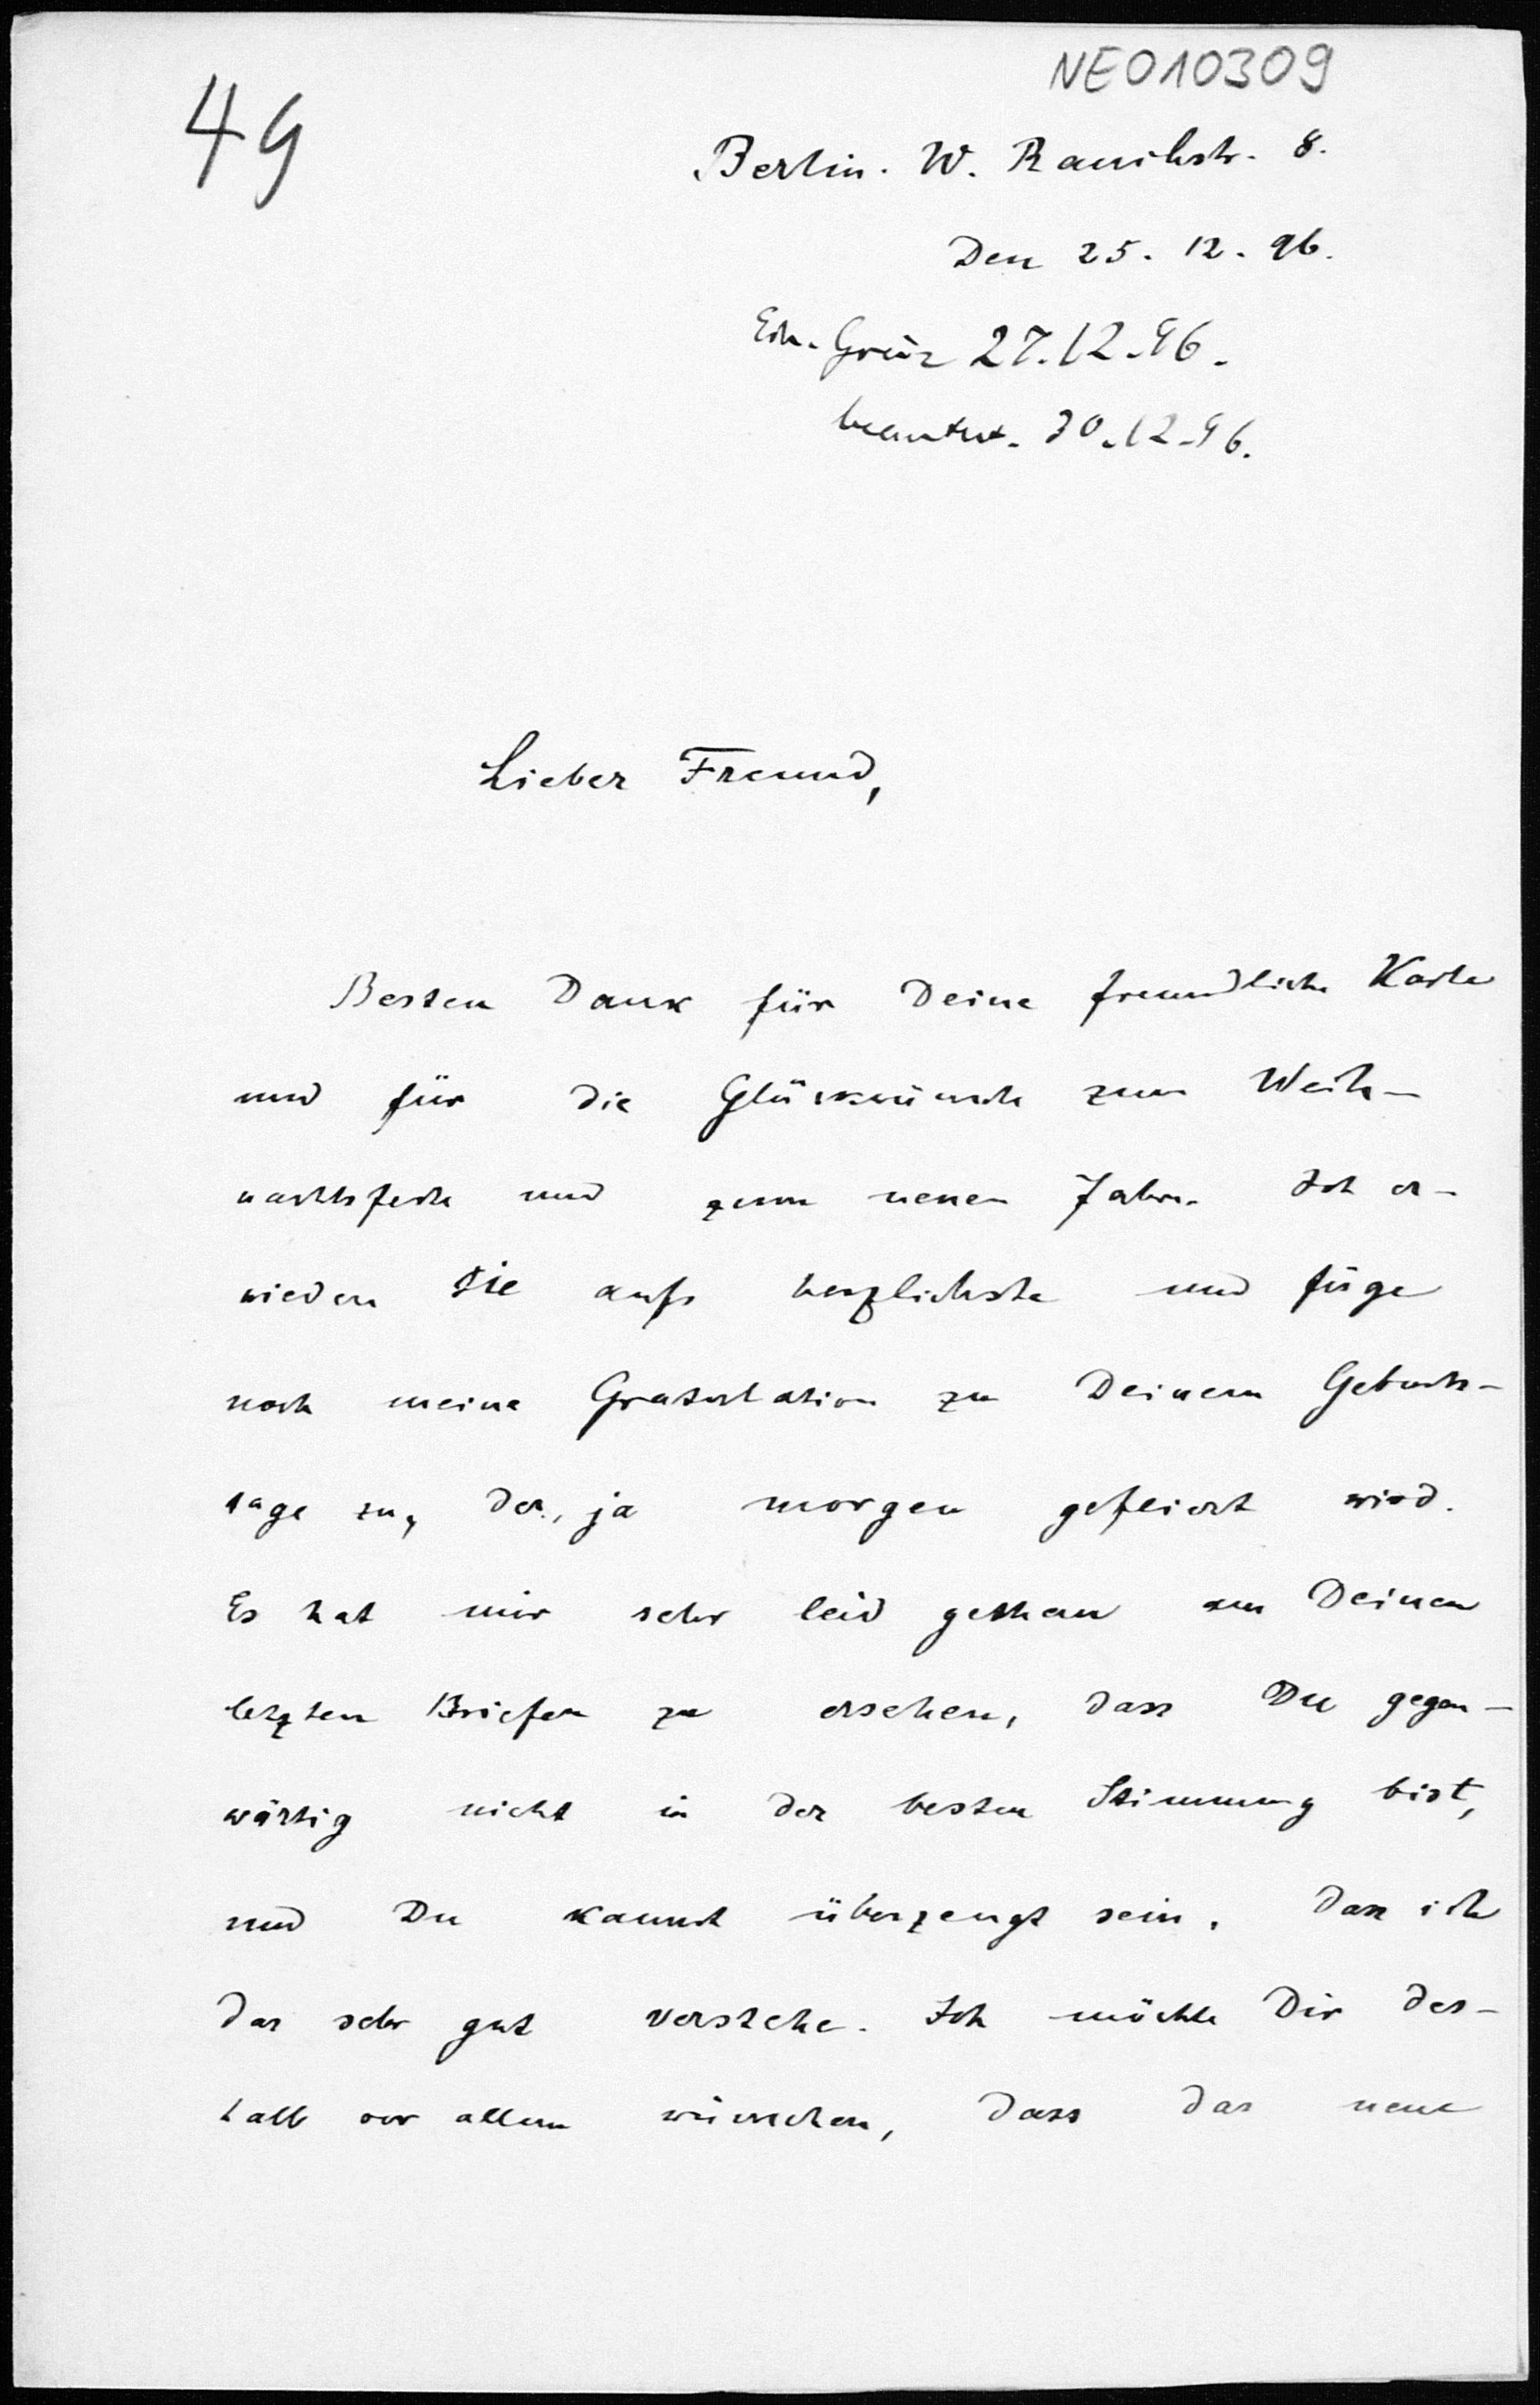 NE010309
49
Berlin. W. Rauchstr. 8.
Den 25. 12. 96.
27.12.96.
beantwt. 30.12.96.
Lieber Freund,
Besten Dank für Deine freundliche Karte
und für die Glückwünsche zum Weih-
nachtsfeste und zum neuen Jahre. Ich er-
wiedere sie aufs herzlichste und füge
noch meine Gratulation zu Deinem Geburts-
tage zu, der, ja morgen gefeiert wird.
Es hat mir sehr leid gethan aus Deinen
letzten Briefen zu ersehen, dass Du gegen-
wärtig nicht in der besten Stimmung bist,
und Du kannst überzeugt sein, dass ich
das sehr gut verstehe. Ich möchte Dir des-
halb vor allem wünschen, dass das neue